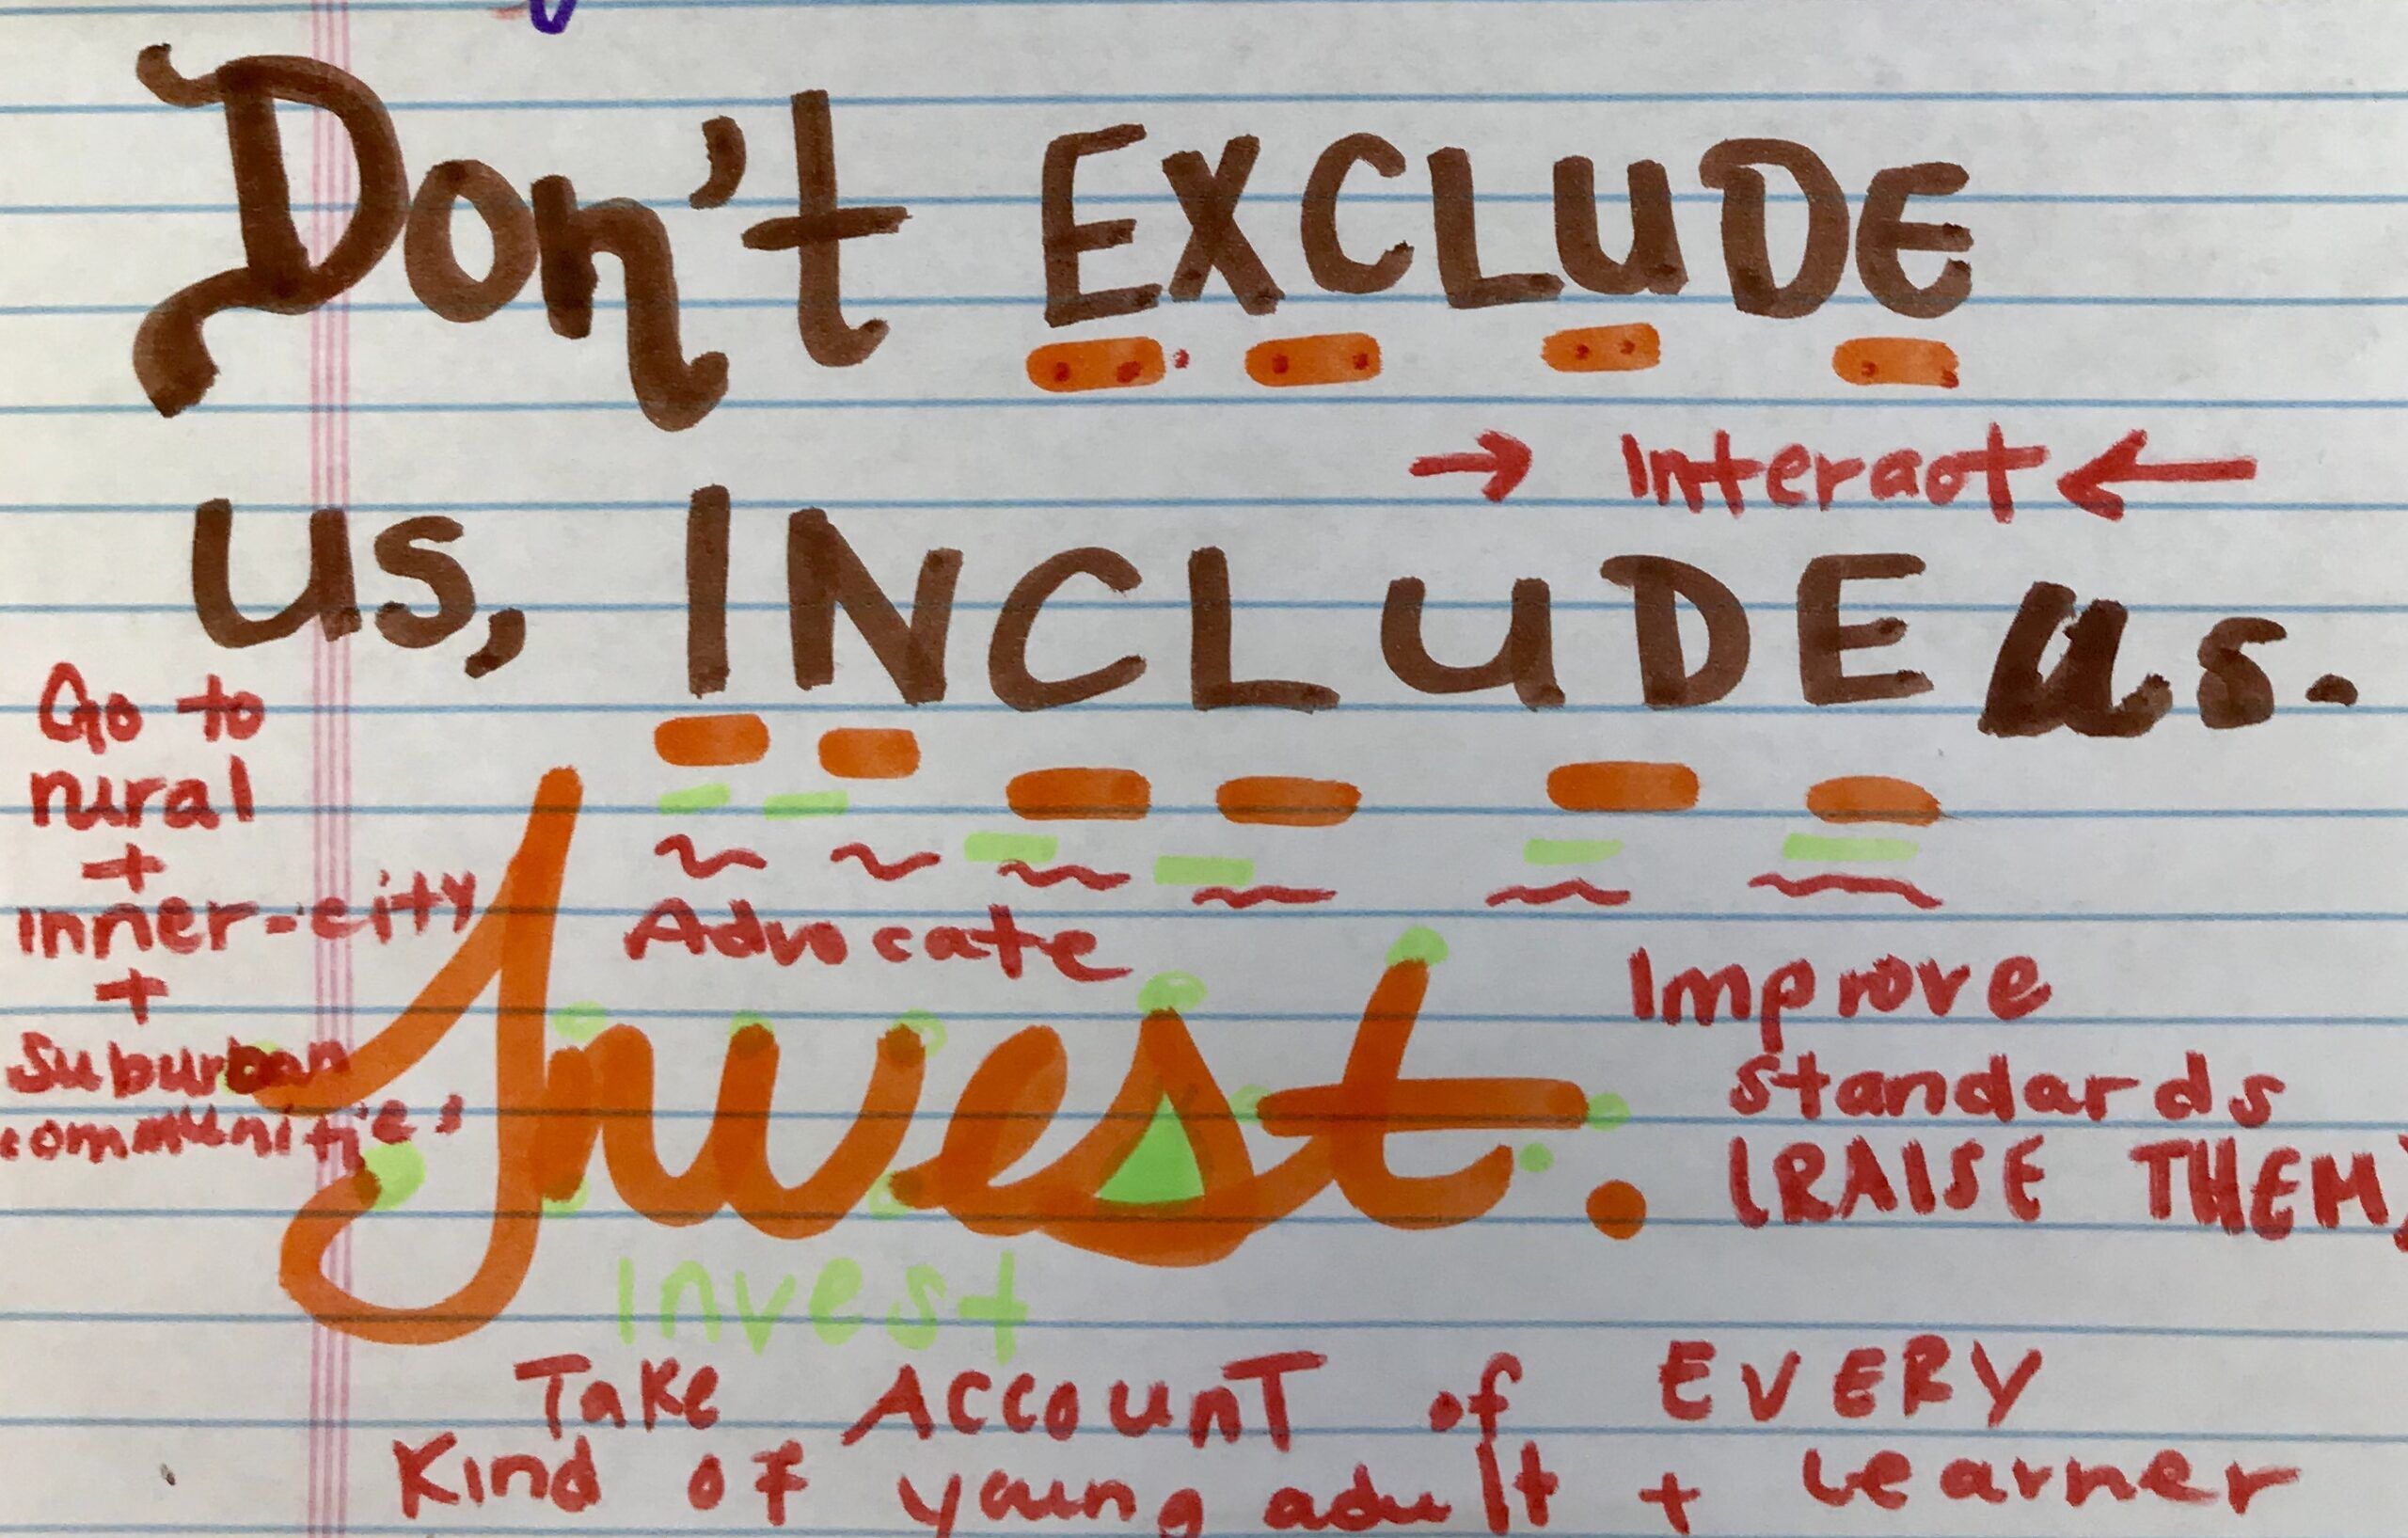 Don't EXCLUDE
→ Interact ←
us, INCLUDE us.
Go to
rural
+
inner-city
+
Suburban
communities
Advocate
Invest.
Improve
standards
(RAISE THEM)
invest
Take ACCOUNT of EVERY
Kind of young adult + learner